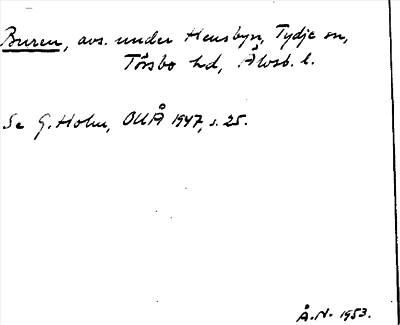 Buren, avs. under Hensbyn, Tydje sn,
Tössbo hd, Älvsb. l.
Se G. Holm, OUÅ 1947, s. 25.
Å. N. 1953.